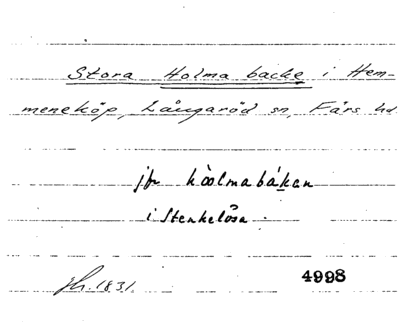 Stora Holma backe i Hem-
meneköp, Långaröd sn, Färs hd
jfr hòolmabákan
i Stenkelösa.
1831.
4998